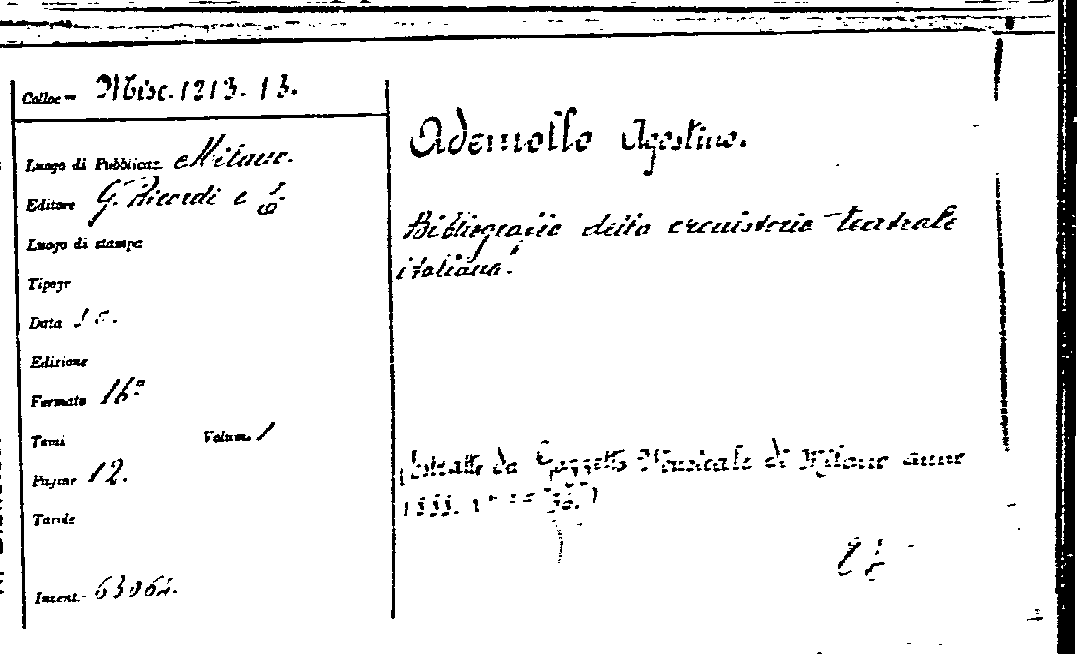 Colloc. Misc. 1213. 13.
Luogo di Pubblicaz. Milano.
Editore G. Ricordi e C.
Luogo di stampa
Tipogr
Data
Edizione
Formato 16°
Tomi Volumi 1
Pagine 12.
Tavole
Invent. 63064.
Ademollo Agostino.
Bibliografia della cronistoria teatrale
italiana.
(Estratto da Gazzetta Musicale di Milano anno